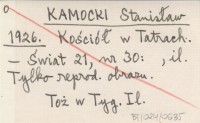 KAMOCKI Stanisław
1926. Kościół w Tatrach.
— Świat 21, nr 30: , il.
Tylko reprod. obrazu.
Toż w Tyg. Il.